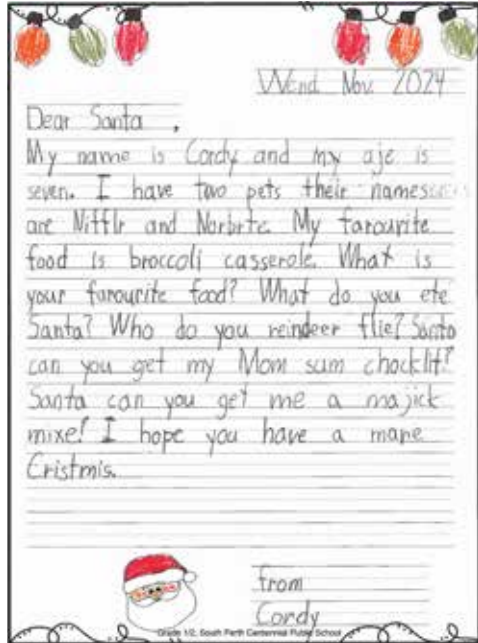 Wend. Nov. 2024
Dear Santa ,
My name is Cordy and my aje is
seven. I have two pets their names
are Nifflr and Norbrte. My favourite
food is broccoli casserole. What is
your favourite food? What do you ete
Santa? Who do you reindeer flie? Santa
can you get my Mom sum chocklit?
Santa can you get me a majick
mixe! I hope you have a mare
Cristmis.
from
Cordy
Grade 1/2, South Perth Centennial Public School